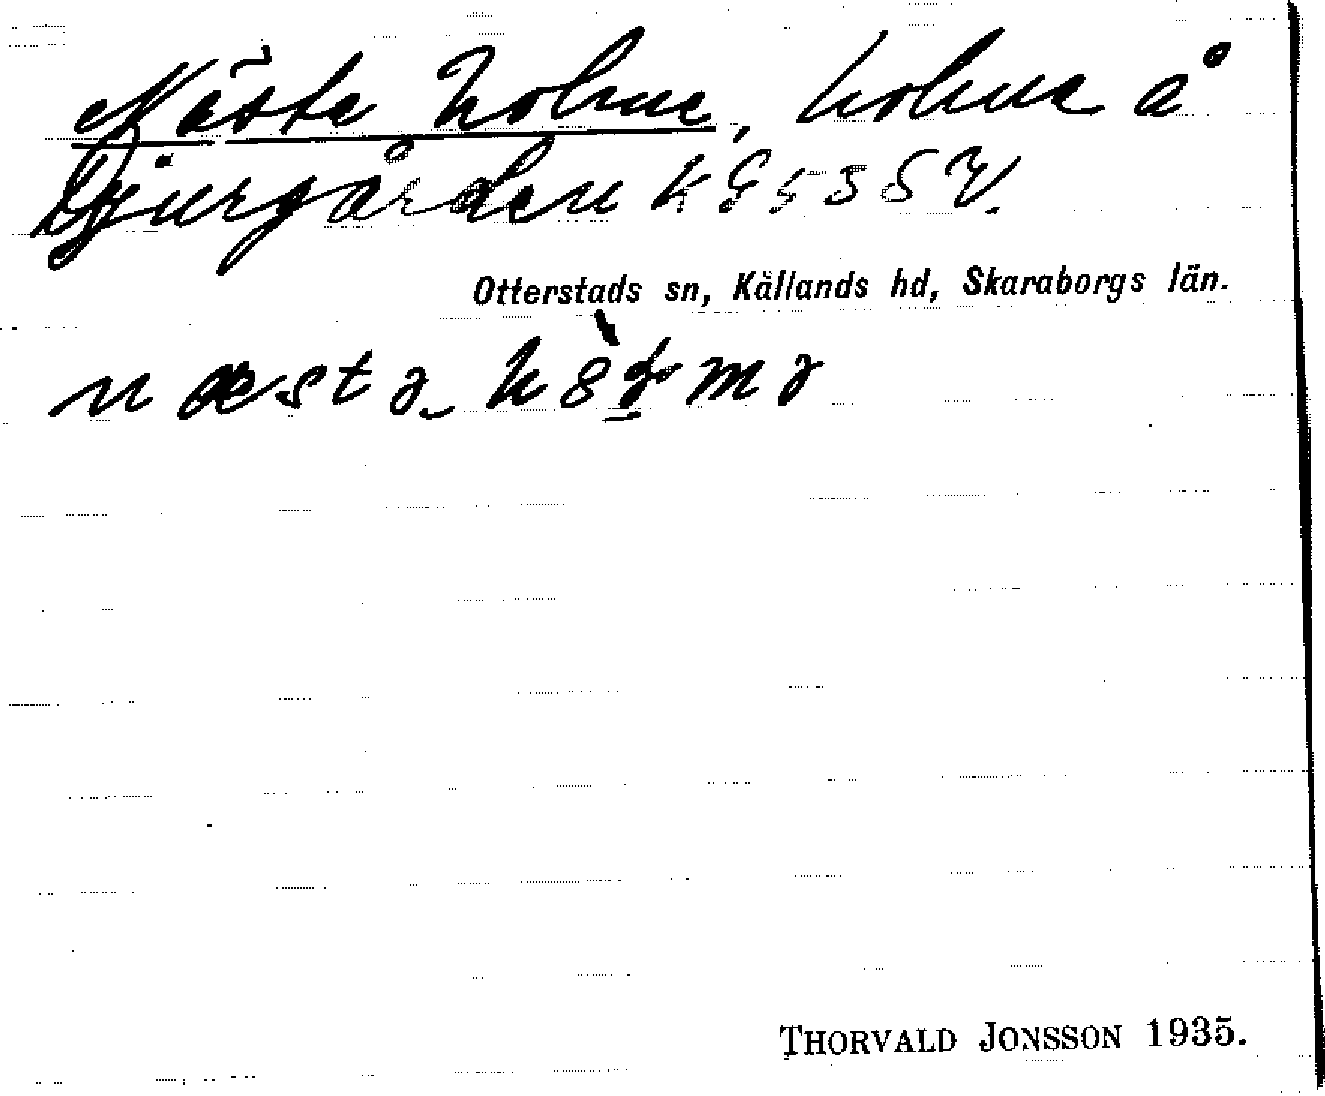 Nästa holme, holme å
Djurgården
Otterstads sn, Kållands hd, Skaraborgs län.
THORVALD JONSSON 1935.